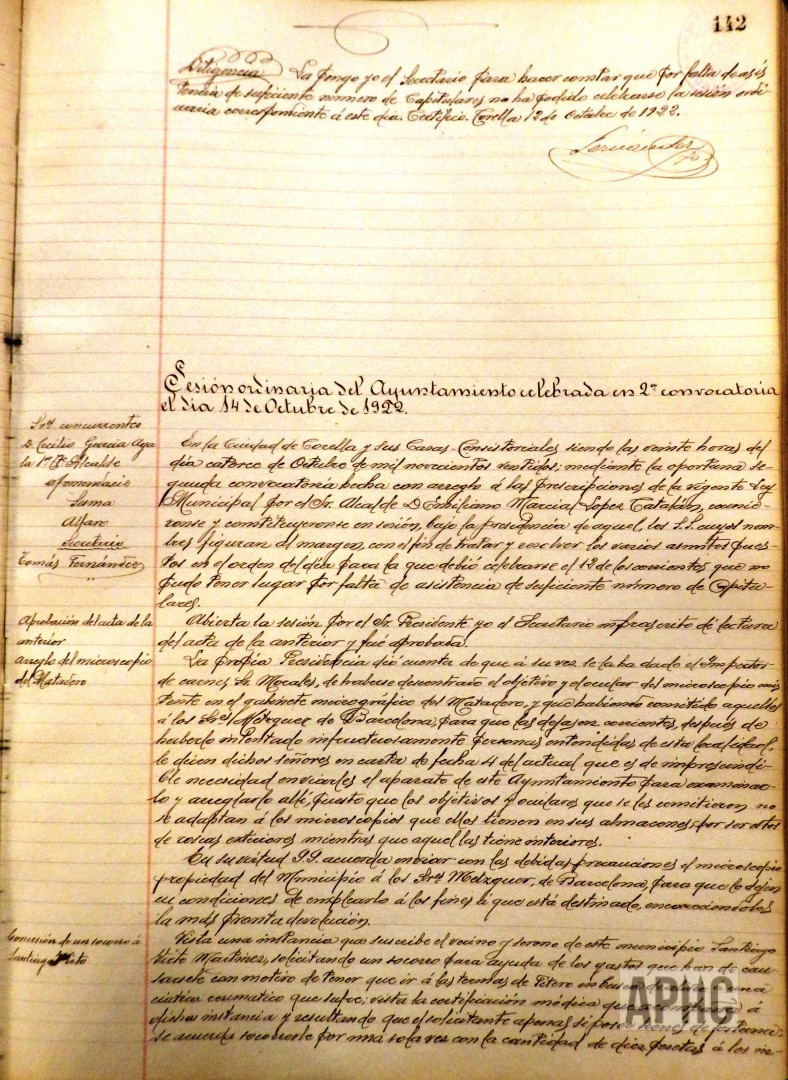 142
Diligencia La pongo yo el Secretario para hacer constar que por falta de asis
tencia de suficiente número de Capitulares no ha podido celebrarse la sesión ordi
naria correspondiente á este día. Certifico. Corella 12 de Octubre de 1922.
Fernández
Sesión ordinaria del Ayuntamiento celebrada en 2ª convocatoria
el día 14 de Octubre de 1922.
Sres concurrentes
D. Cecilio García Aya
la 1er Tte Alcalde
Sama
Alfaro
Secretario
Tomás Fernández
En la Ciudad de Corella y sus Casas-Consistoriales siendo las veinte horas del
día catorce de Octubre de mil novecientos ventidos; mediante la oportuna se-
gunda convocatoria hecha con arreglo á las prescripciones de la vigente Ley
Municipal por el Sr. Alcalde D. Emiliano Marcial Lopez Catalán, reunié-
ronse y constituyeronse en sesión, bajo la presidencia de aquel, los S.S. cuyos nom-
bres figuran al margen, con el fin de tratar y resolver los varios asuntos pues-
tos en el orden del día para la que debió celebrarse el 12 de los corrientes que no
pudo tener lugar por falta de asistencia de suficiente número de Capitu-
lares.
Aprobación del acta de la
anterior
Abierta la sesión por el Sr. Presidente yo el Secretario infrascrito dí lectura
del acta de la anterior y fué aprobada.
arreglo del microscopio
del Matadero
La propia Presidencia dió cuenta de que á su vez se la ha dado el Inspector
de carnes Sr. Morales, de haberse descentrado el objetivo y el ocular del microscopio exis
tente en el gabinete micrográfico del Matadero, y que habiendo remitido aquellos
á los Sres Metzguer de Barcelona, para que los dejasen corrientes, después de
haberlo intentado infructuosamente personas entendidas de esta localidad,
le dicen dichos señores en carta de fecha 4 del actual que es de imprescindi-
ble necesidad enviarles el aparato de este Ayuntamiento para examinar-
lo y arreglarlo allí, puesto que los objetivos y oculares que se les remitieron no
se adaptan á los microscopios que ellos tienen en sus almacenes, por ser estos
de roscas exteriores mientras que aquel las tiene interiores.
En su virtud S.S. acuerda enviar con las debidas precauciones el microscopio
propiedad del Municipio á los Sres Metzguer, de Barcelona, para que lo dejen
en condiciones de emplearlo á los fines á que está destinado, encareciéndoles
la más pronta devolución.
Concesión de un socorro á
Santiago Virto
Vista una instancia que suscribe el vecino y sereno de este municipio Santiago
Virto Martínez, solicitando un socorro para ayuda de los gastos que han de cau-
sarsele con motivo de tener que ir á las termas de Fitero en busca de una
ciatica reumatico que sufre; vista la certificación médica que á
dicha instancia y resultando que el solicitante apenas si posee bienes de fortuna;
se acuerda socorrerle por una sola vez con la cantidad de diez pesetas á los in-
APHC